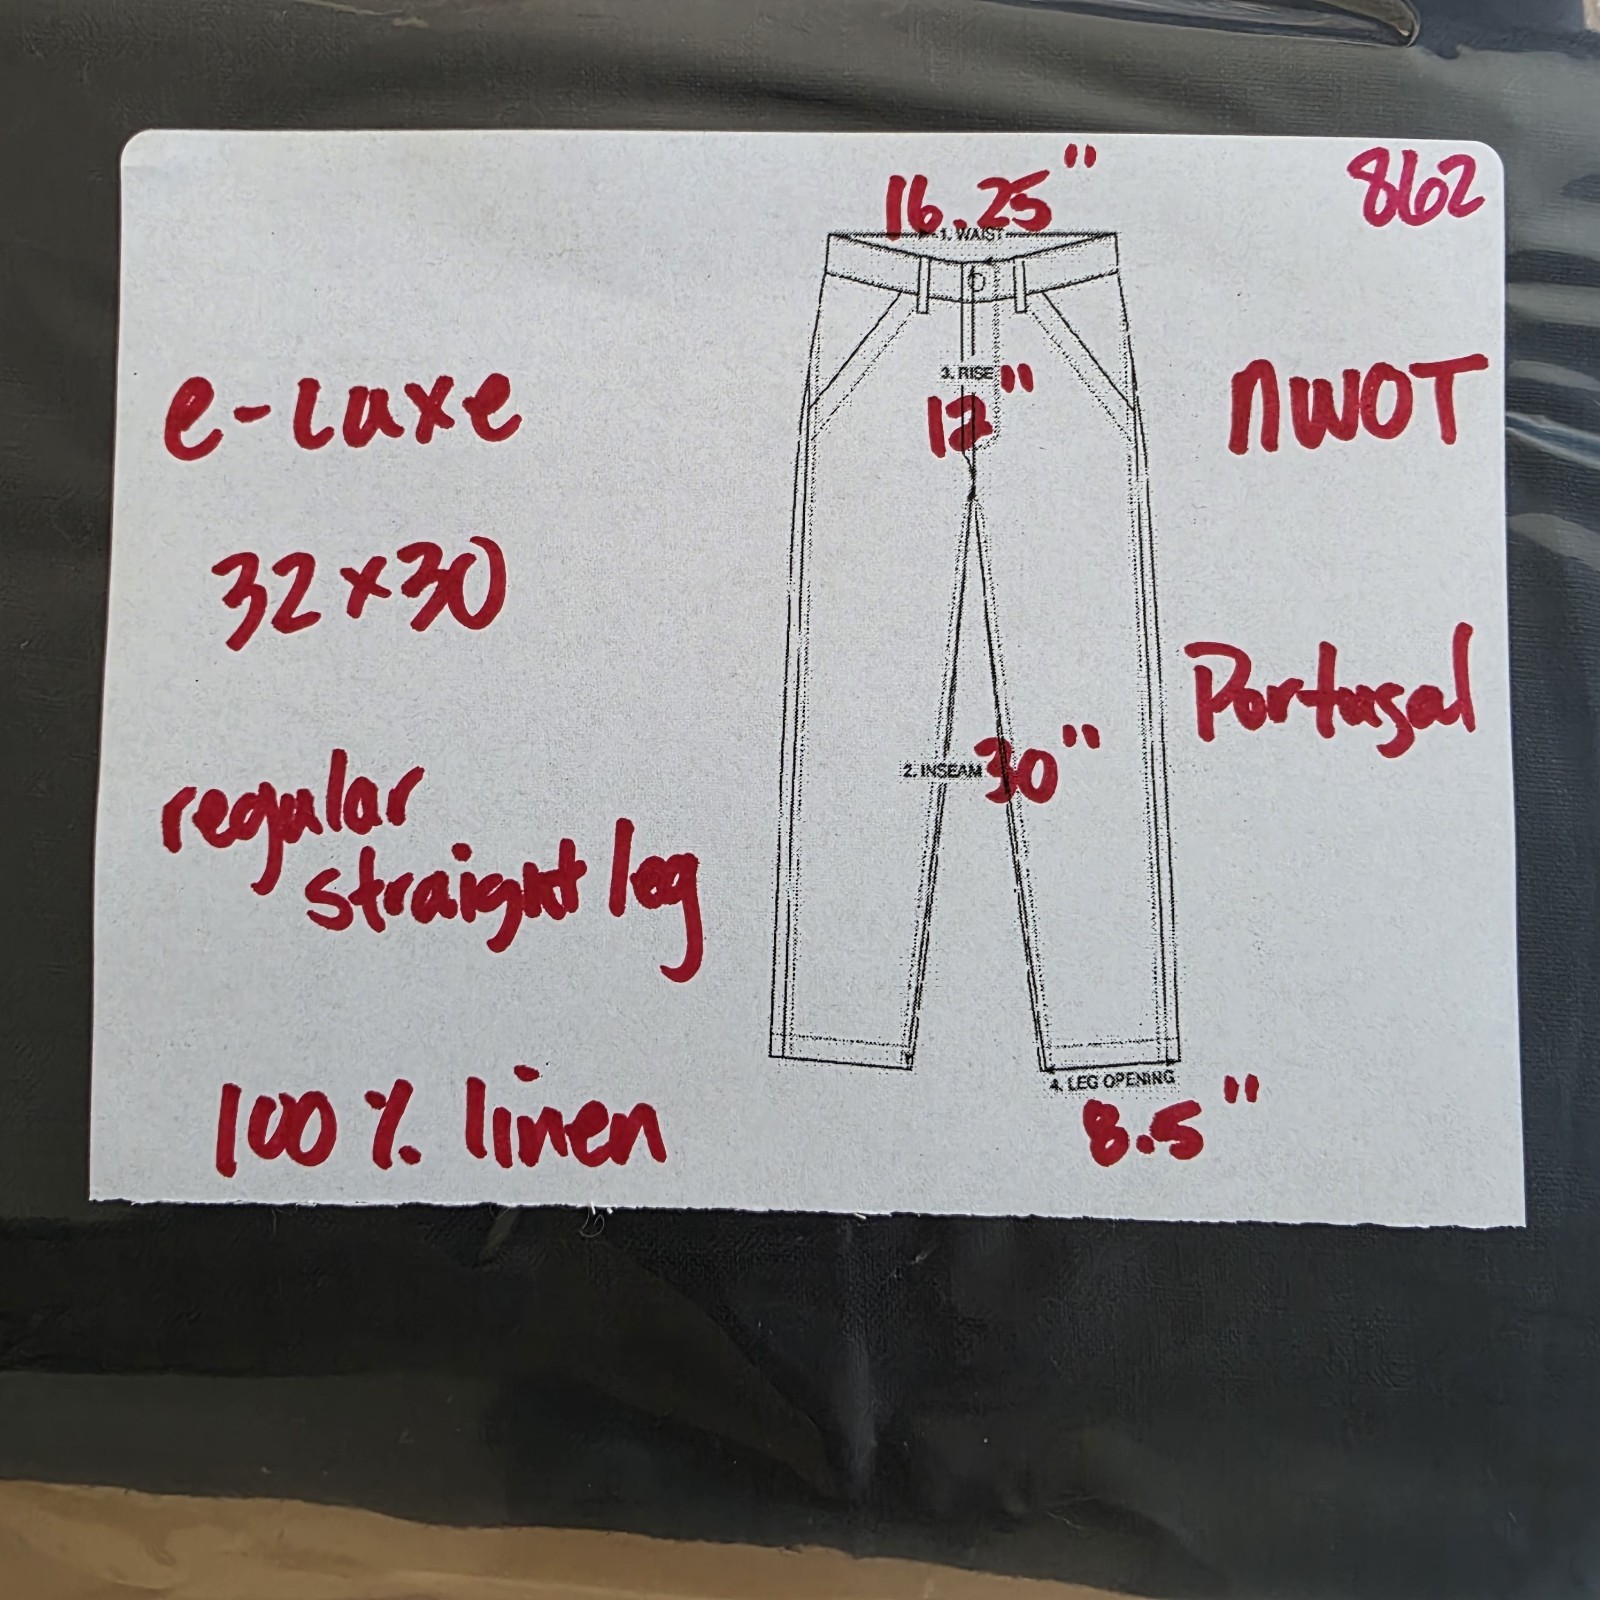 862
16.25"
1. WAIST
e-Luxe
3. RISE
12"
NWOT
32x30
Portugal
regular
straight leg
2. INSEAM
30"
4. LEG OPENING
8.5"
100% linen